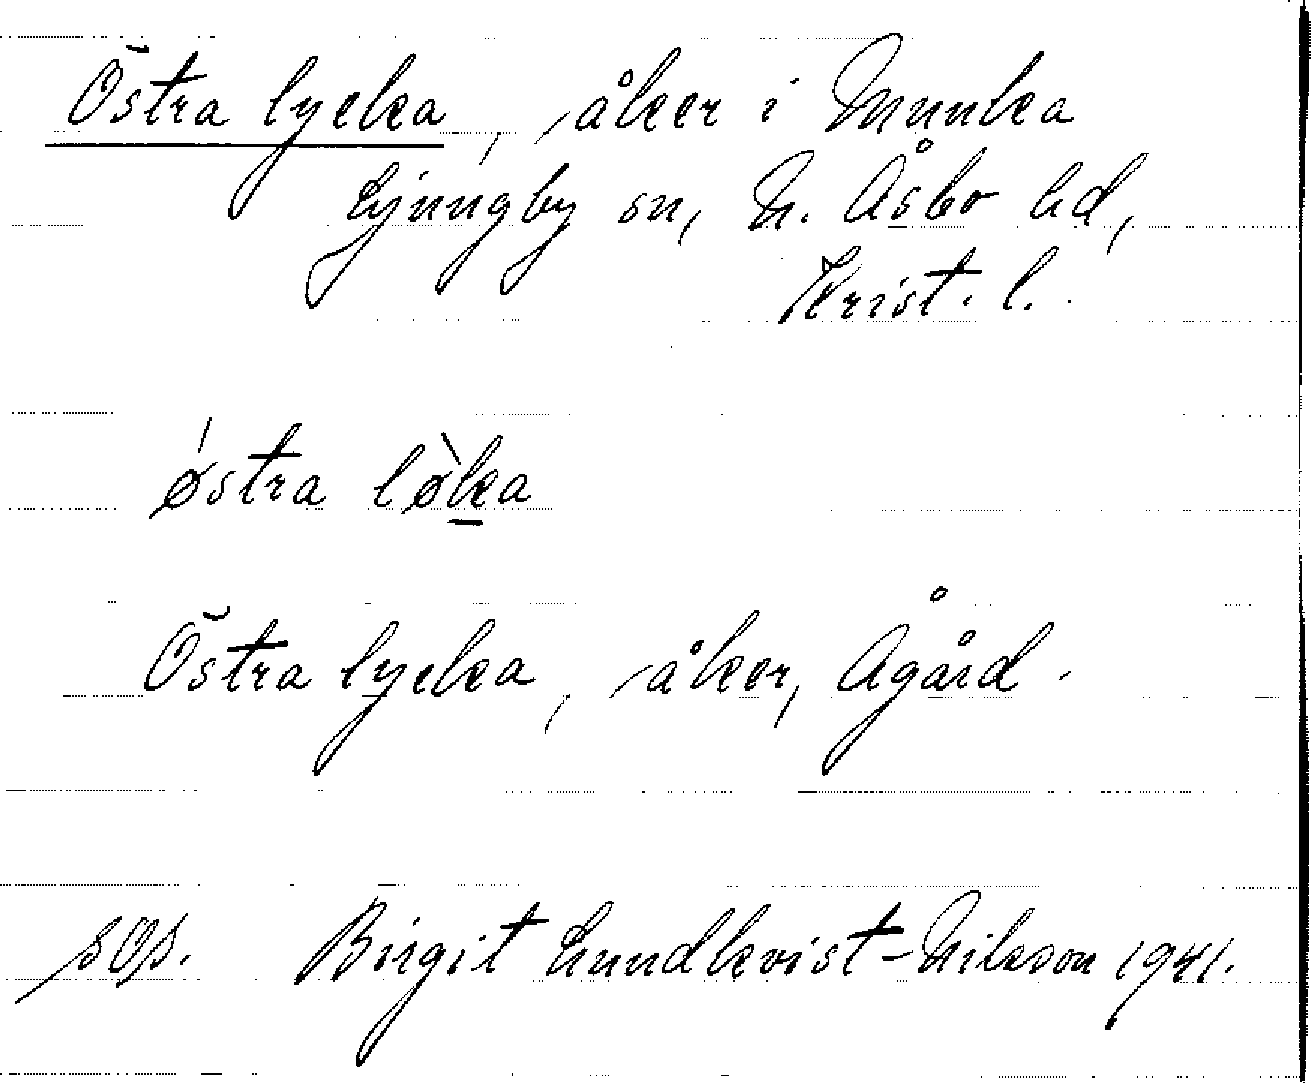 Östra lycka, åker i Munka
Ljungby sn, N. Åsbo hd,
Krist. l.
ǿstra lø̀ka
Östra lycka, åker, Ågård.
sOp. Birgit Lundkvist-Nilsson 1941.